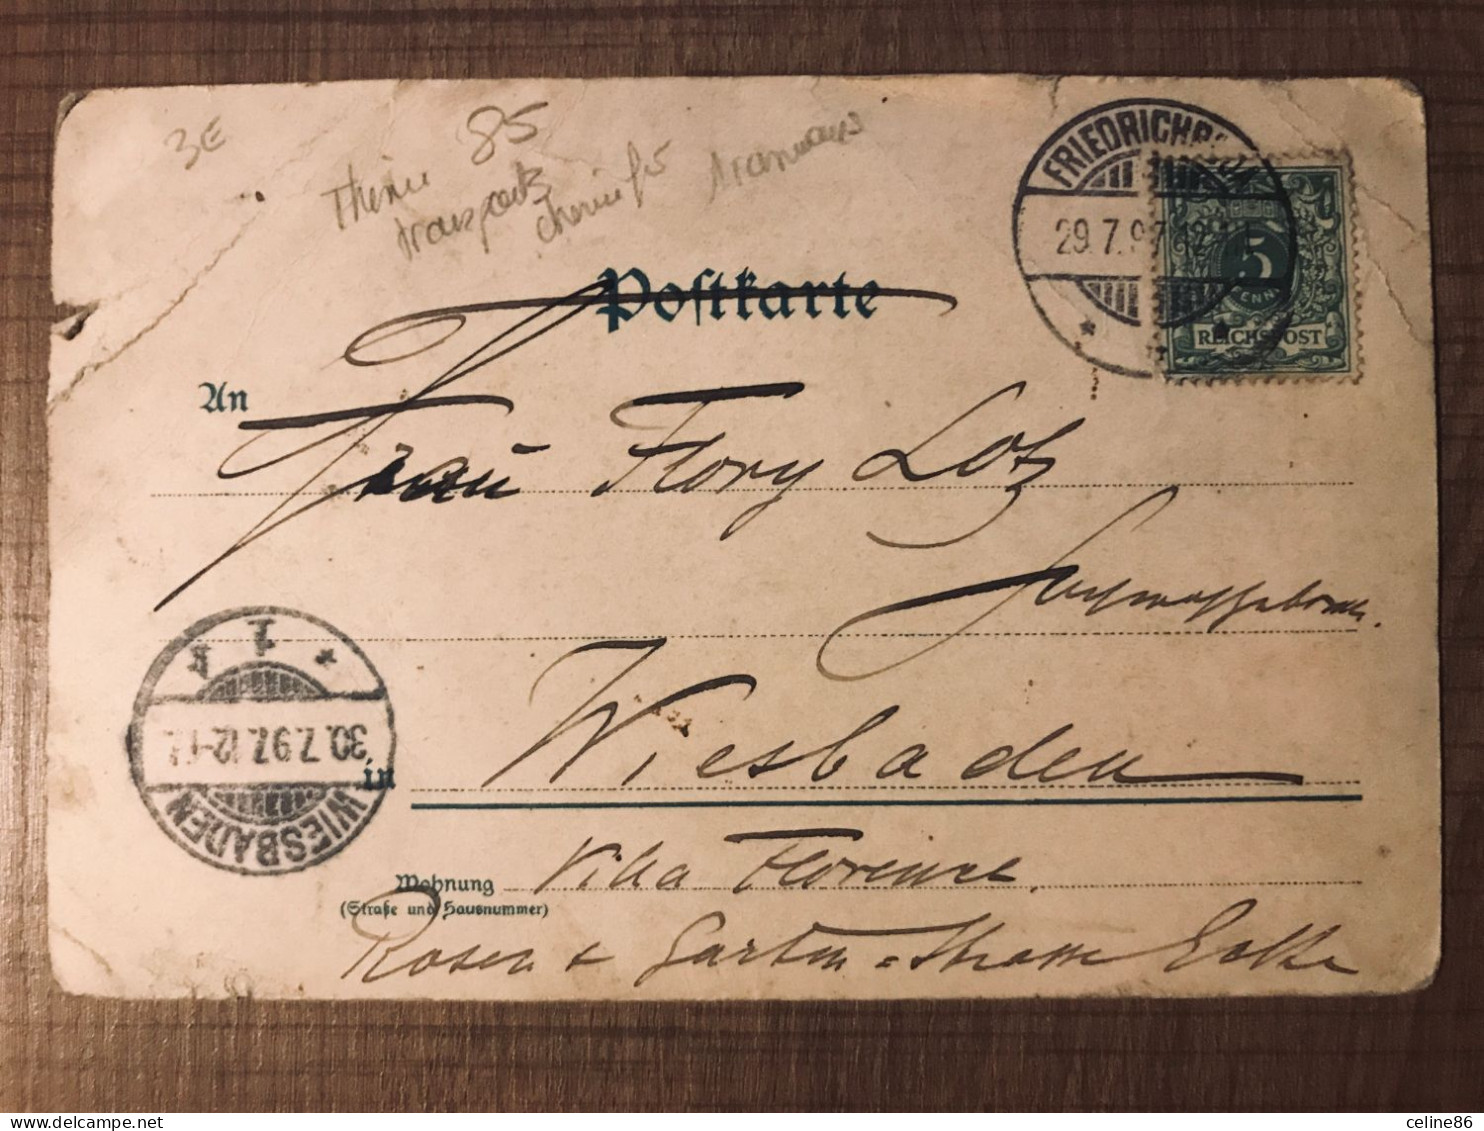 3E
85
Thème
transports
chemin fer tramways
FRIEDRICHR
29.7.97.12
5
PFENNIG
REICHSPOST
Postkarte
An
Frau Flory Lotz
Wiesbaden
in
1
30.7.97.12-1
WIESBADEN
Wohnung
(Straße und Hausnummer)
Villa Florence
Rosen & Garten=Strasse Ecke
delcampe.net
celine86